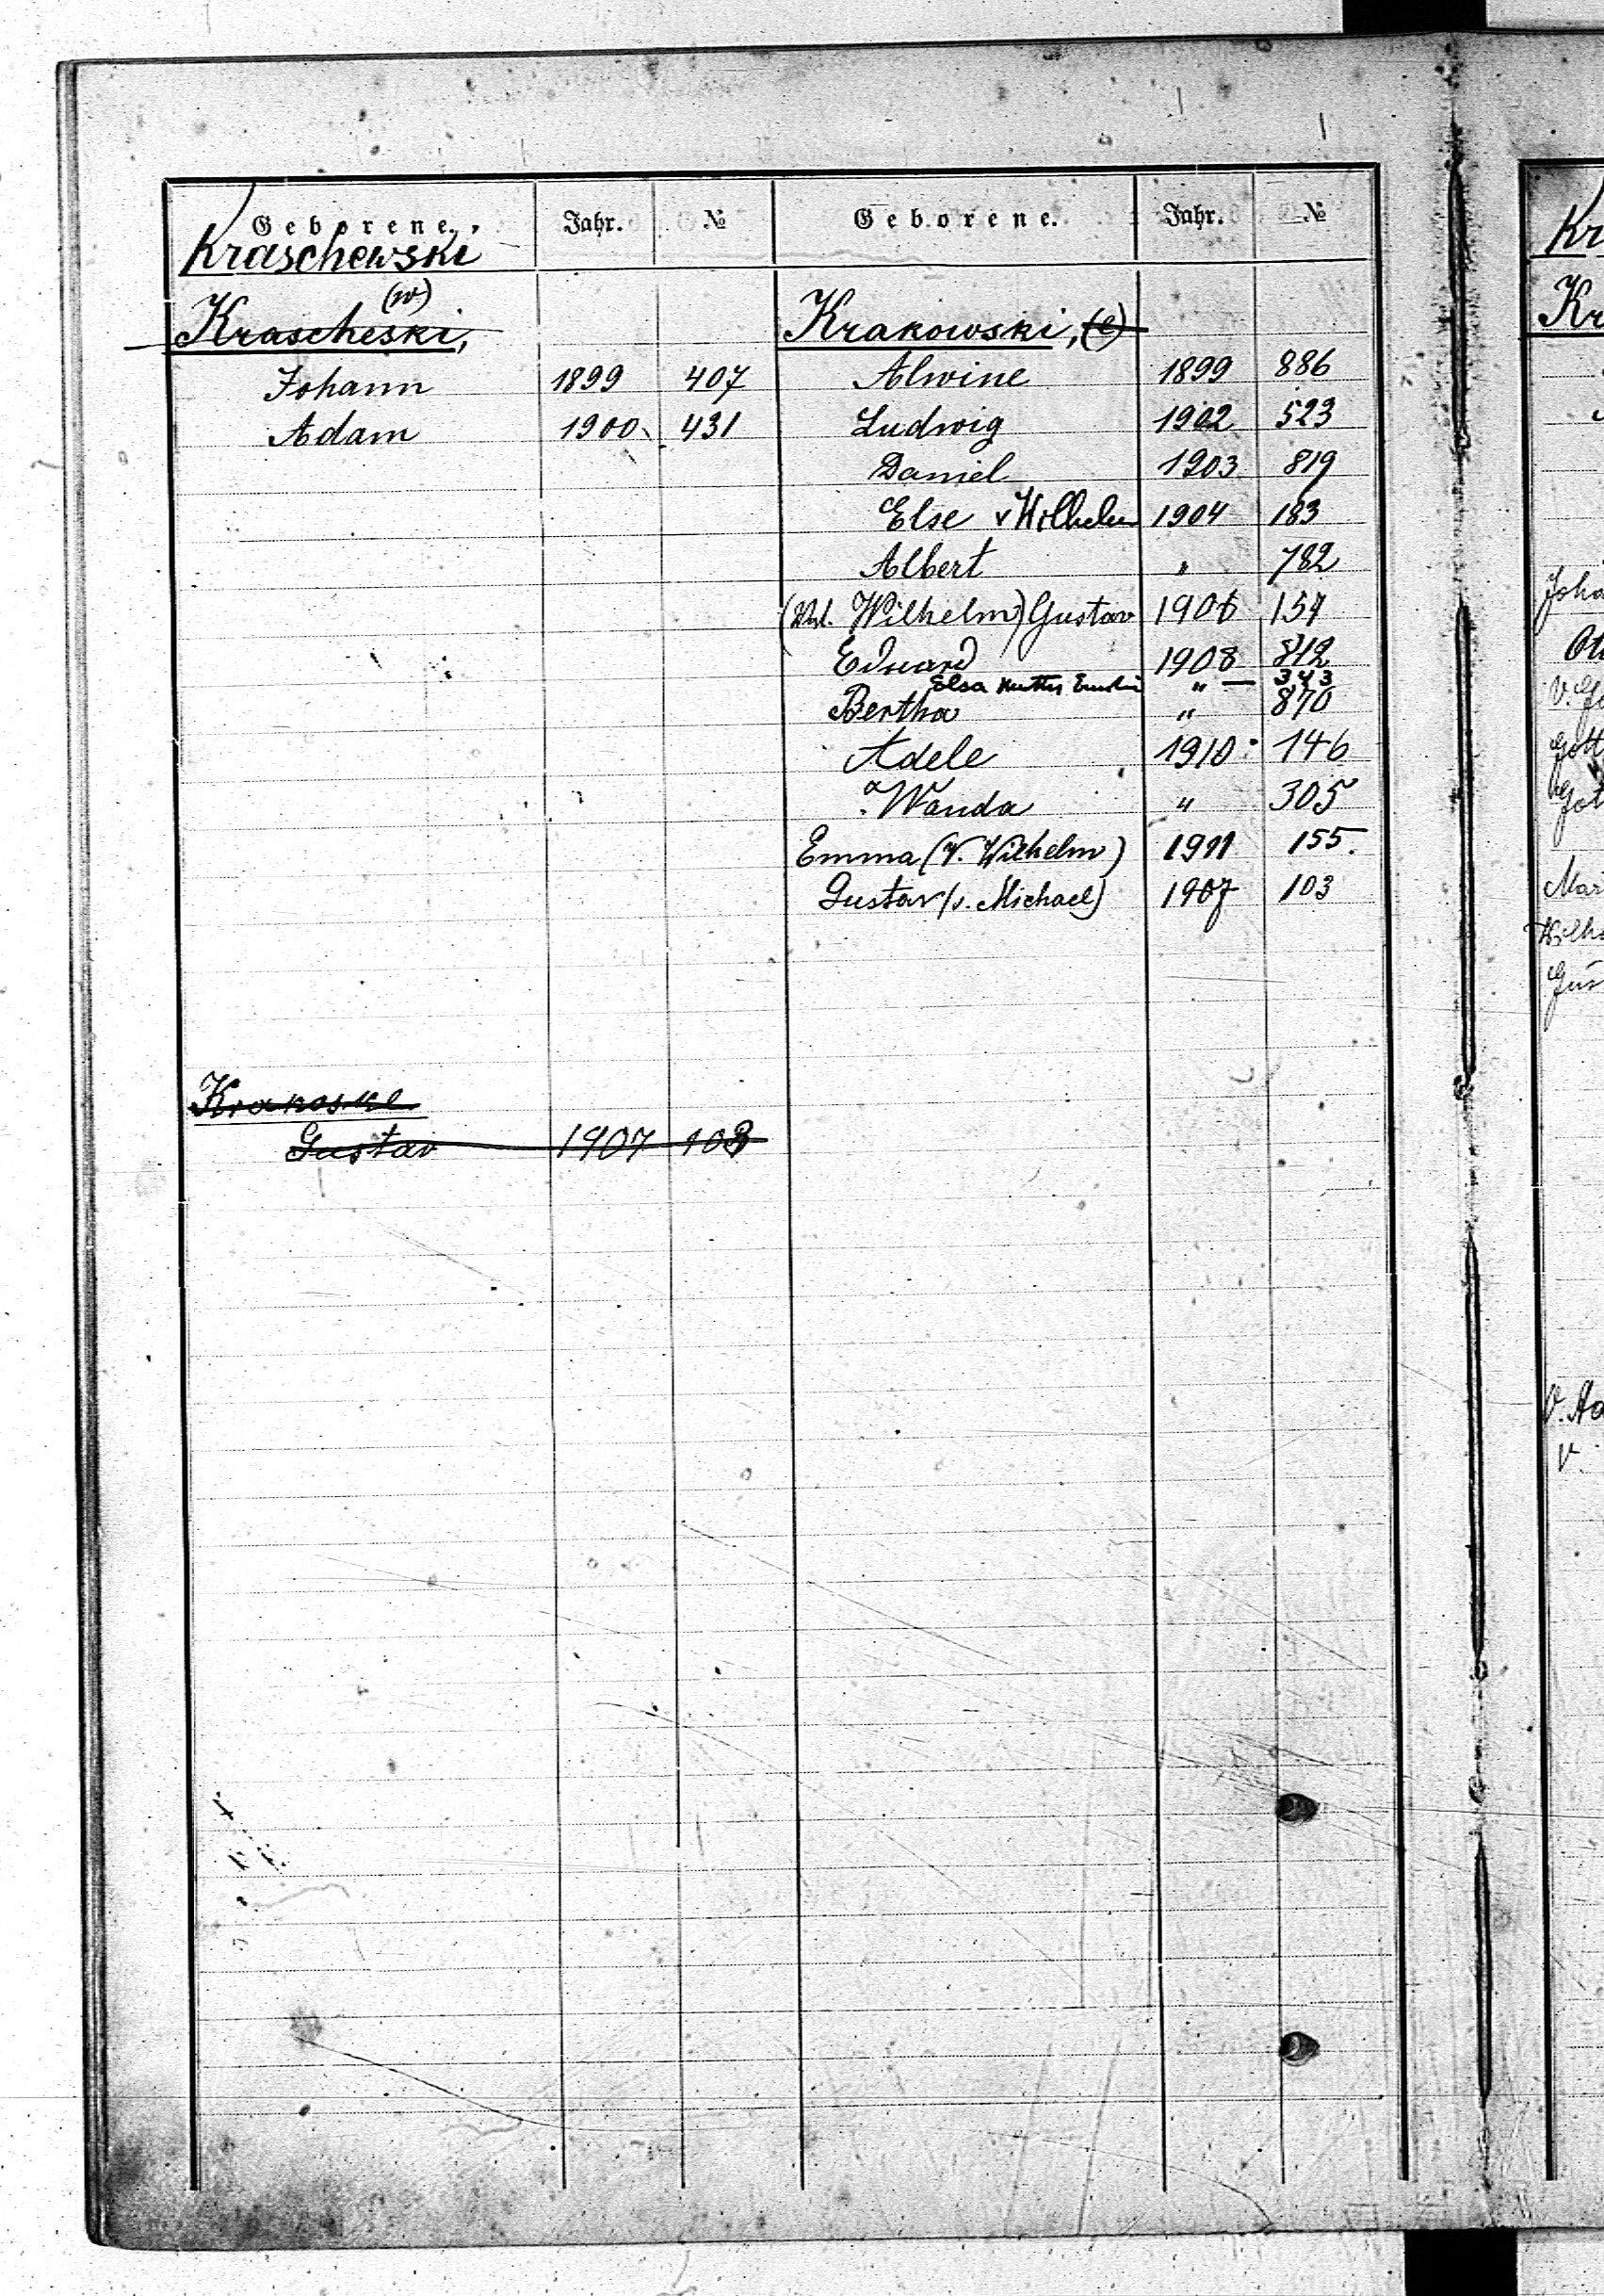 Geborene. Jahr. № Geborene. Jahr. №
Kraschewski
(w)
Krascheski,
Johann 1899 407
Adam 1900 431
Krakoske
Gustav 1907 103
Krakowski, (e)
Alwine 1899 886
Ludwig 1902 523
Daniel 1903 819
Else v Wilhelm 1904 183
Albert " 782
Wilhelm) Gustav 1906 157
Eduard 1908 812
Elsa Mutter " — 343
Bertha " 870
Adele 1910 146
Wanda " 305
Emma (V. Wilhelm) 1911 155.
Gustav (v. Michael) 1907 103
Kr
Kr
Joha
V. Jo
Gott
Got
Mar
Wilhe
Gus
V. Ad
V.